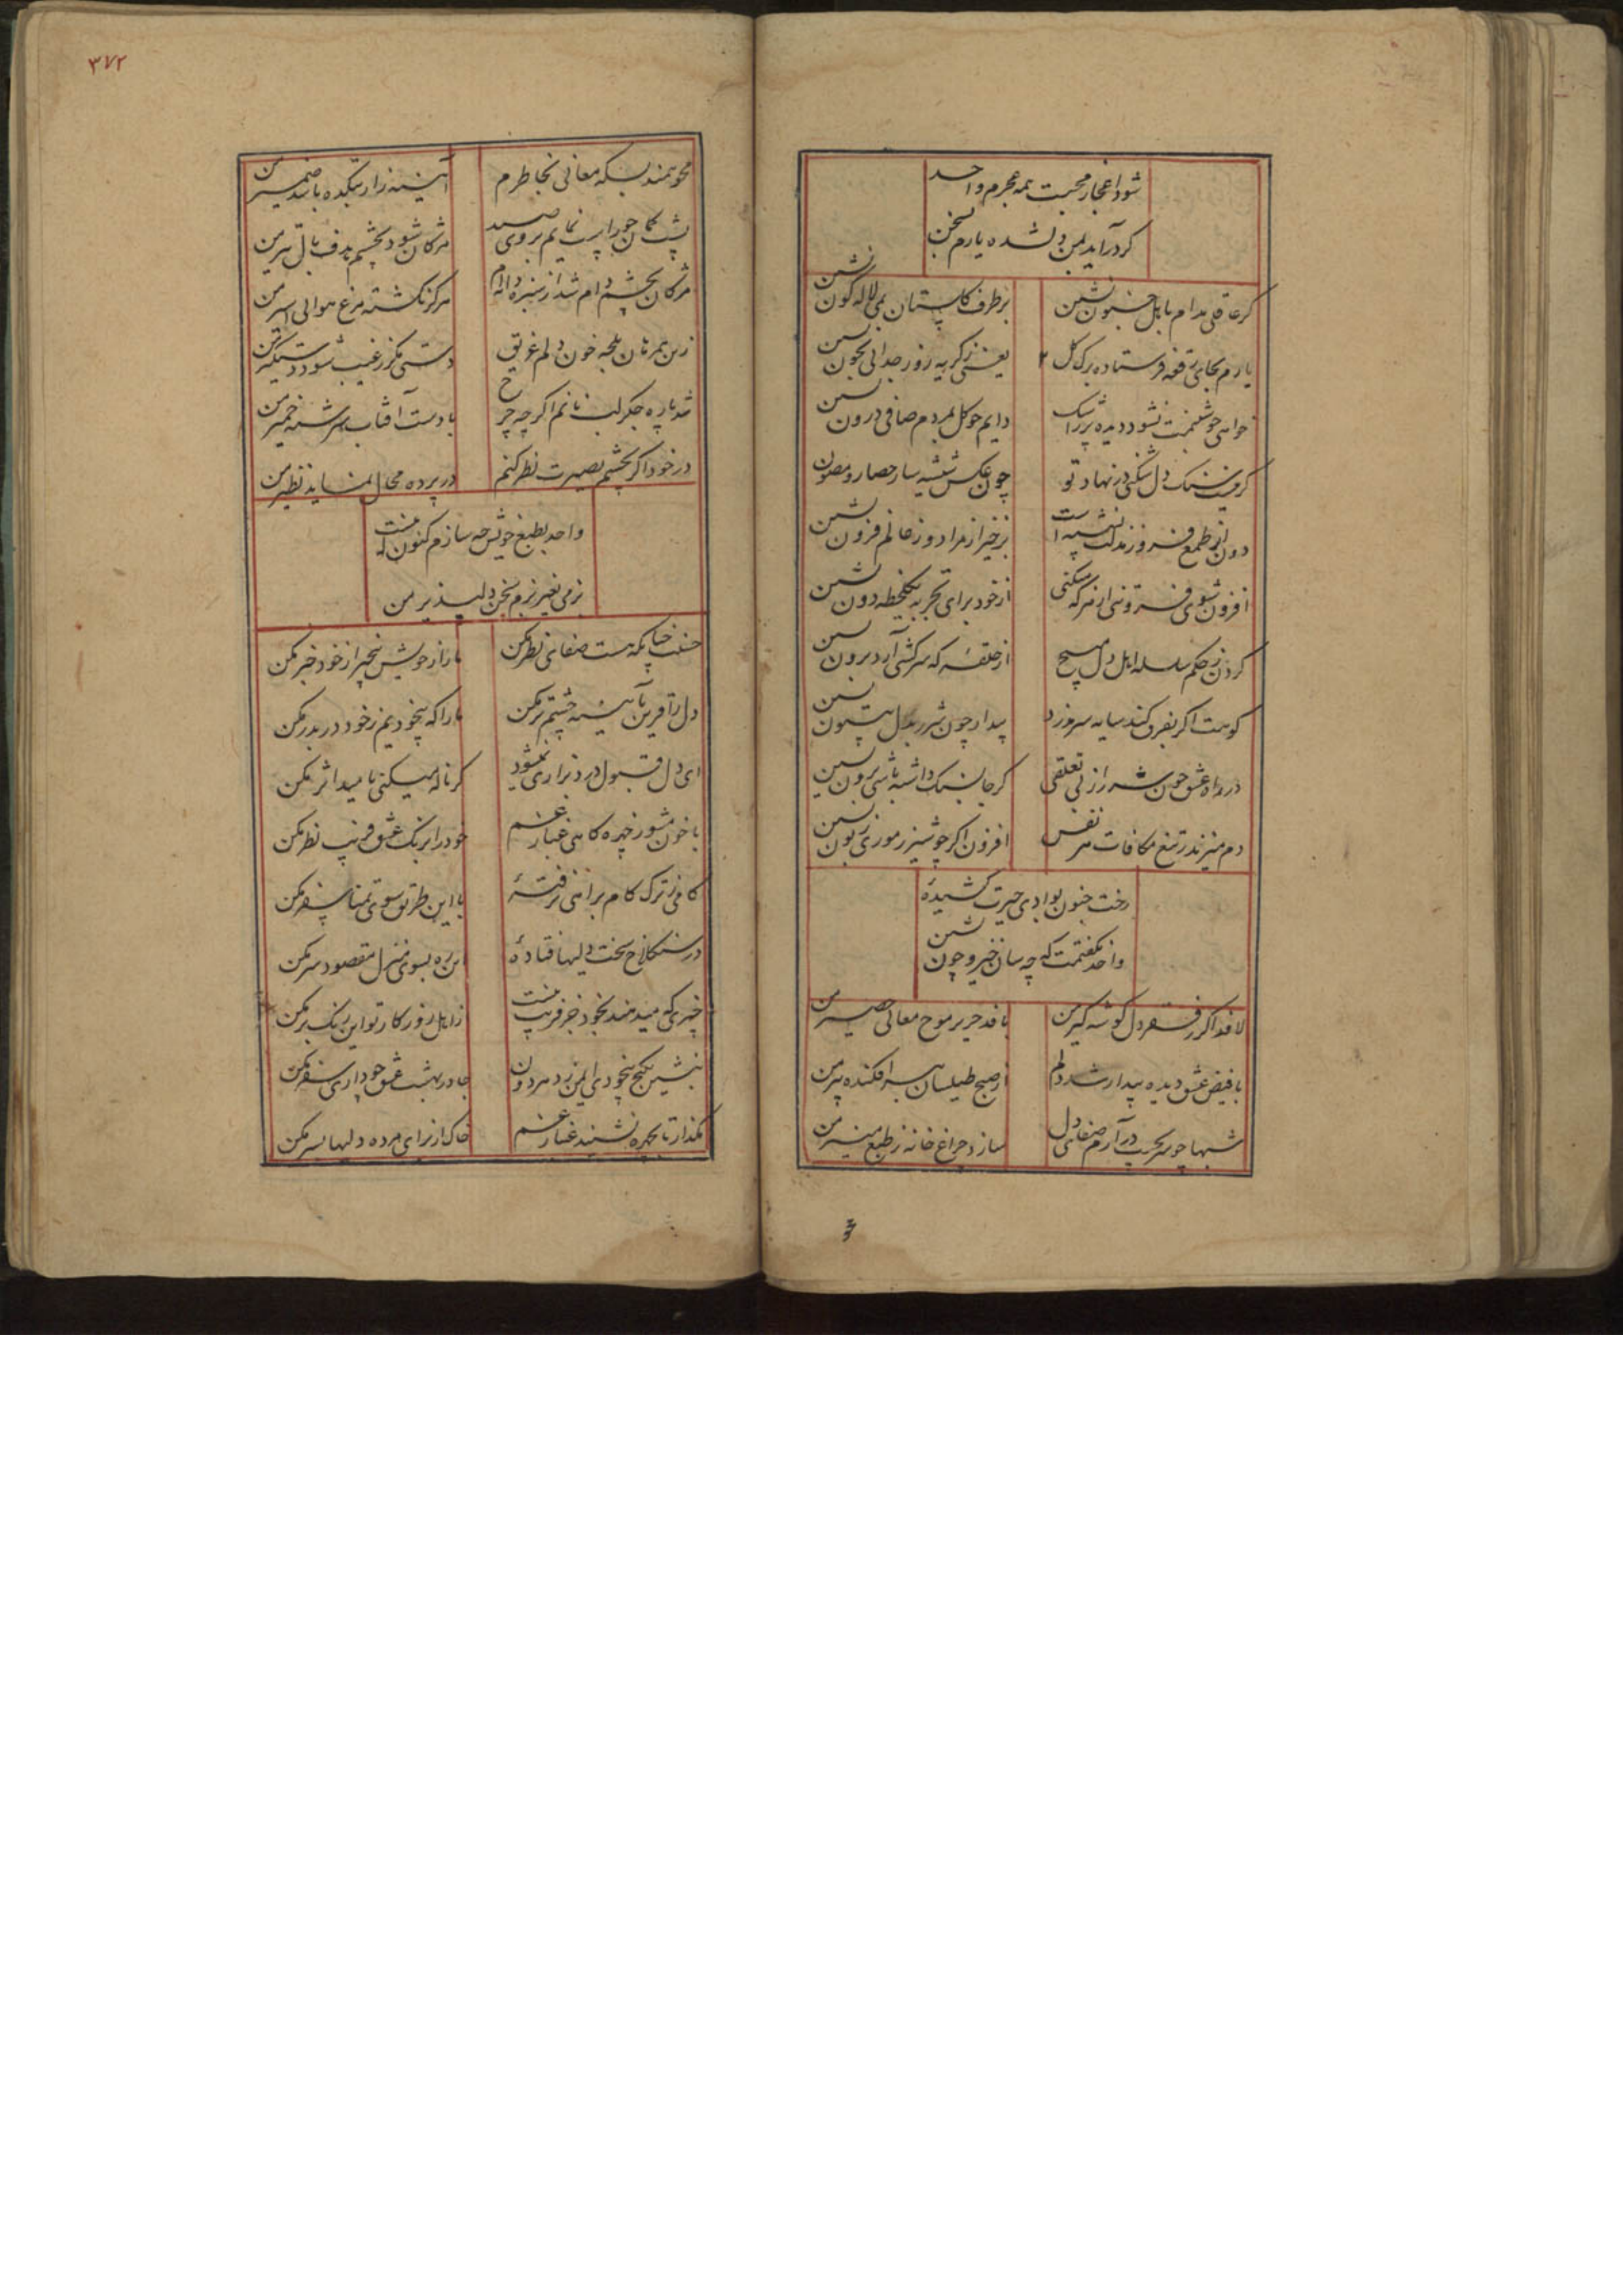 شود اعجاز محبت همه عجزم واحد
کر درآید بمن دلشده یارم بسخن
کر عاقلی مدام باهل جنون نشین
بر طرف کلستان بمی لاله کون نشین
یارم بجای رقعه فرستاده برک کل
یعنی ز کریه روز جدایی بخون نشین
خواهی چو شبنمت نشود دیده پر ز اشک
دایم چو کل بمردم صافی درون نشین
کر نیست سنک دل شکنی در نهاد تو
چون عکس شیشه ساز حصار و مصون نشین
دون از طمع فروز مذلت نشسته است
برخیز از مراد و ز عالم فزون نشین
افزون شوی فروتنی از هر که میکنی
از خود برای تجربه یکلحظه دون نشین
کردن ز حکم سلسله اهل دل مپیچ
از حلقه که سرکشی آرد برون نشین
کوهت اکر بفرق کند سایه سر مزد
بیدار چون شرر بدل بیستون نشین
در راه عشق چون شرر از بی تعلقی
کر جان بسنک داشته باشی برون نشین
دم میزند ز تیغ مکافات هر نفس
افزون اکر چو شیر ز موری زبون نشین
رخت جنون بوادی حیرت کشیده
واحد نکفتمت که چه سان خیز و چون نشین
لافد اکر ز فقر دل کوشه کیر من
بافد حریر موج معانی حصیر من
با فیض عشق دیده بیدار شد دلم
از صبح طیلسان بسر افکنده پیر من
شبها چو سر بجیب در آرم صفای دل
سازد چراغ خانه ز طبع منیر من
۳۷۲
محو همند بسکه معانی بخاطرم
آیینه زار بتکده باشد ضمیر من
پشت کمان چو راست نمایم بروی صید
مژکان شود بچشم هدف بال تیر من
مژکان بچشم دام شد از سبزه دانه ام
هرکز نکشته مرغ هوایی اسیر من
زین همرهان بلجه خون دلم غریق
دستی مکر ز غیب شود دستکیر من
شد پاره جکر لب نانم اکر چه چرخ
با دست آفتاب سرشته خمیر من
در خود اکر بچشم بصیرت نظر کنم
در پرده محال نماید نظیر من
واحد بطبع خویش چه سازم کنون که نیست
بزمی بغیر بزم سخن دلپذیر من
حسنت چنانکه هست صفایی نظر مکن
ما را ز خویش بیخبر از خود خبر مکن
دل را قرین آینه چشم تر مکن
ما را که بیخودیم ز خود در بدر مکن
ای دل قبول درد بزاری نمیشود
کر ناله میکنی بامید اثر مکن
با خون مشو ز چهره کاهی غبار غم
خود را برنک عشق فریب نظر مکن
کامی ز ترک کام براهی نرفته
با این طریق سوی تمنا سفر مکن
در سنکلاخ سخت دلیها فتاده
زین ره بسوی منزل مقصود سر مکن
چیزی که میدهند بخود جز فریب نیست
ز اهل روزکار تو این رنک بر مکن
بنشین بکنج بیخودی ایمن ز دهر دون
جا در بهشت عشق چو داری سفر مکن
مکذار تا بچهره نشیند غبار غم
خاک از برای مرده دلیها بسر مکن